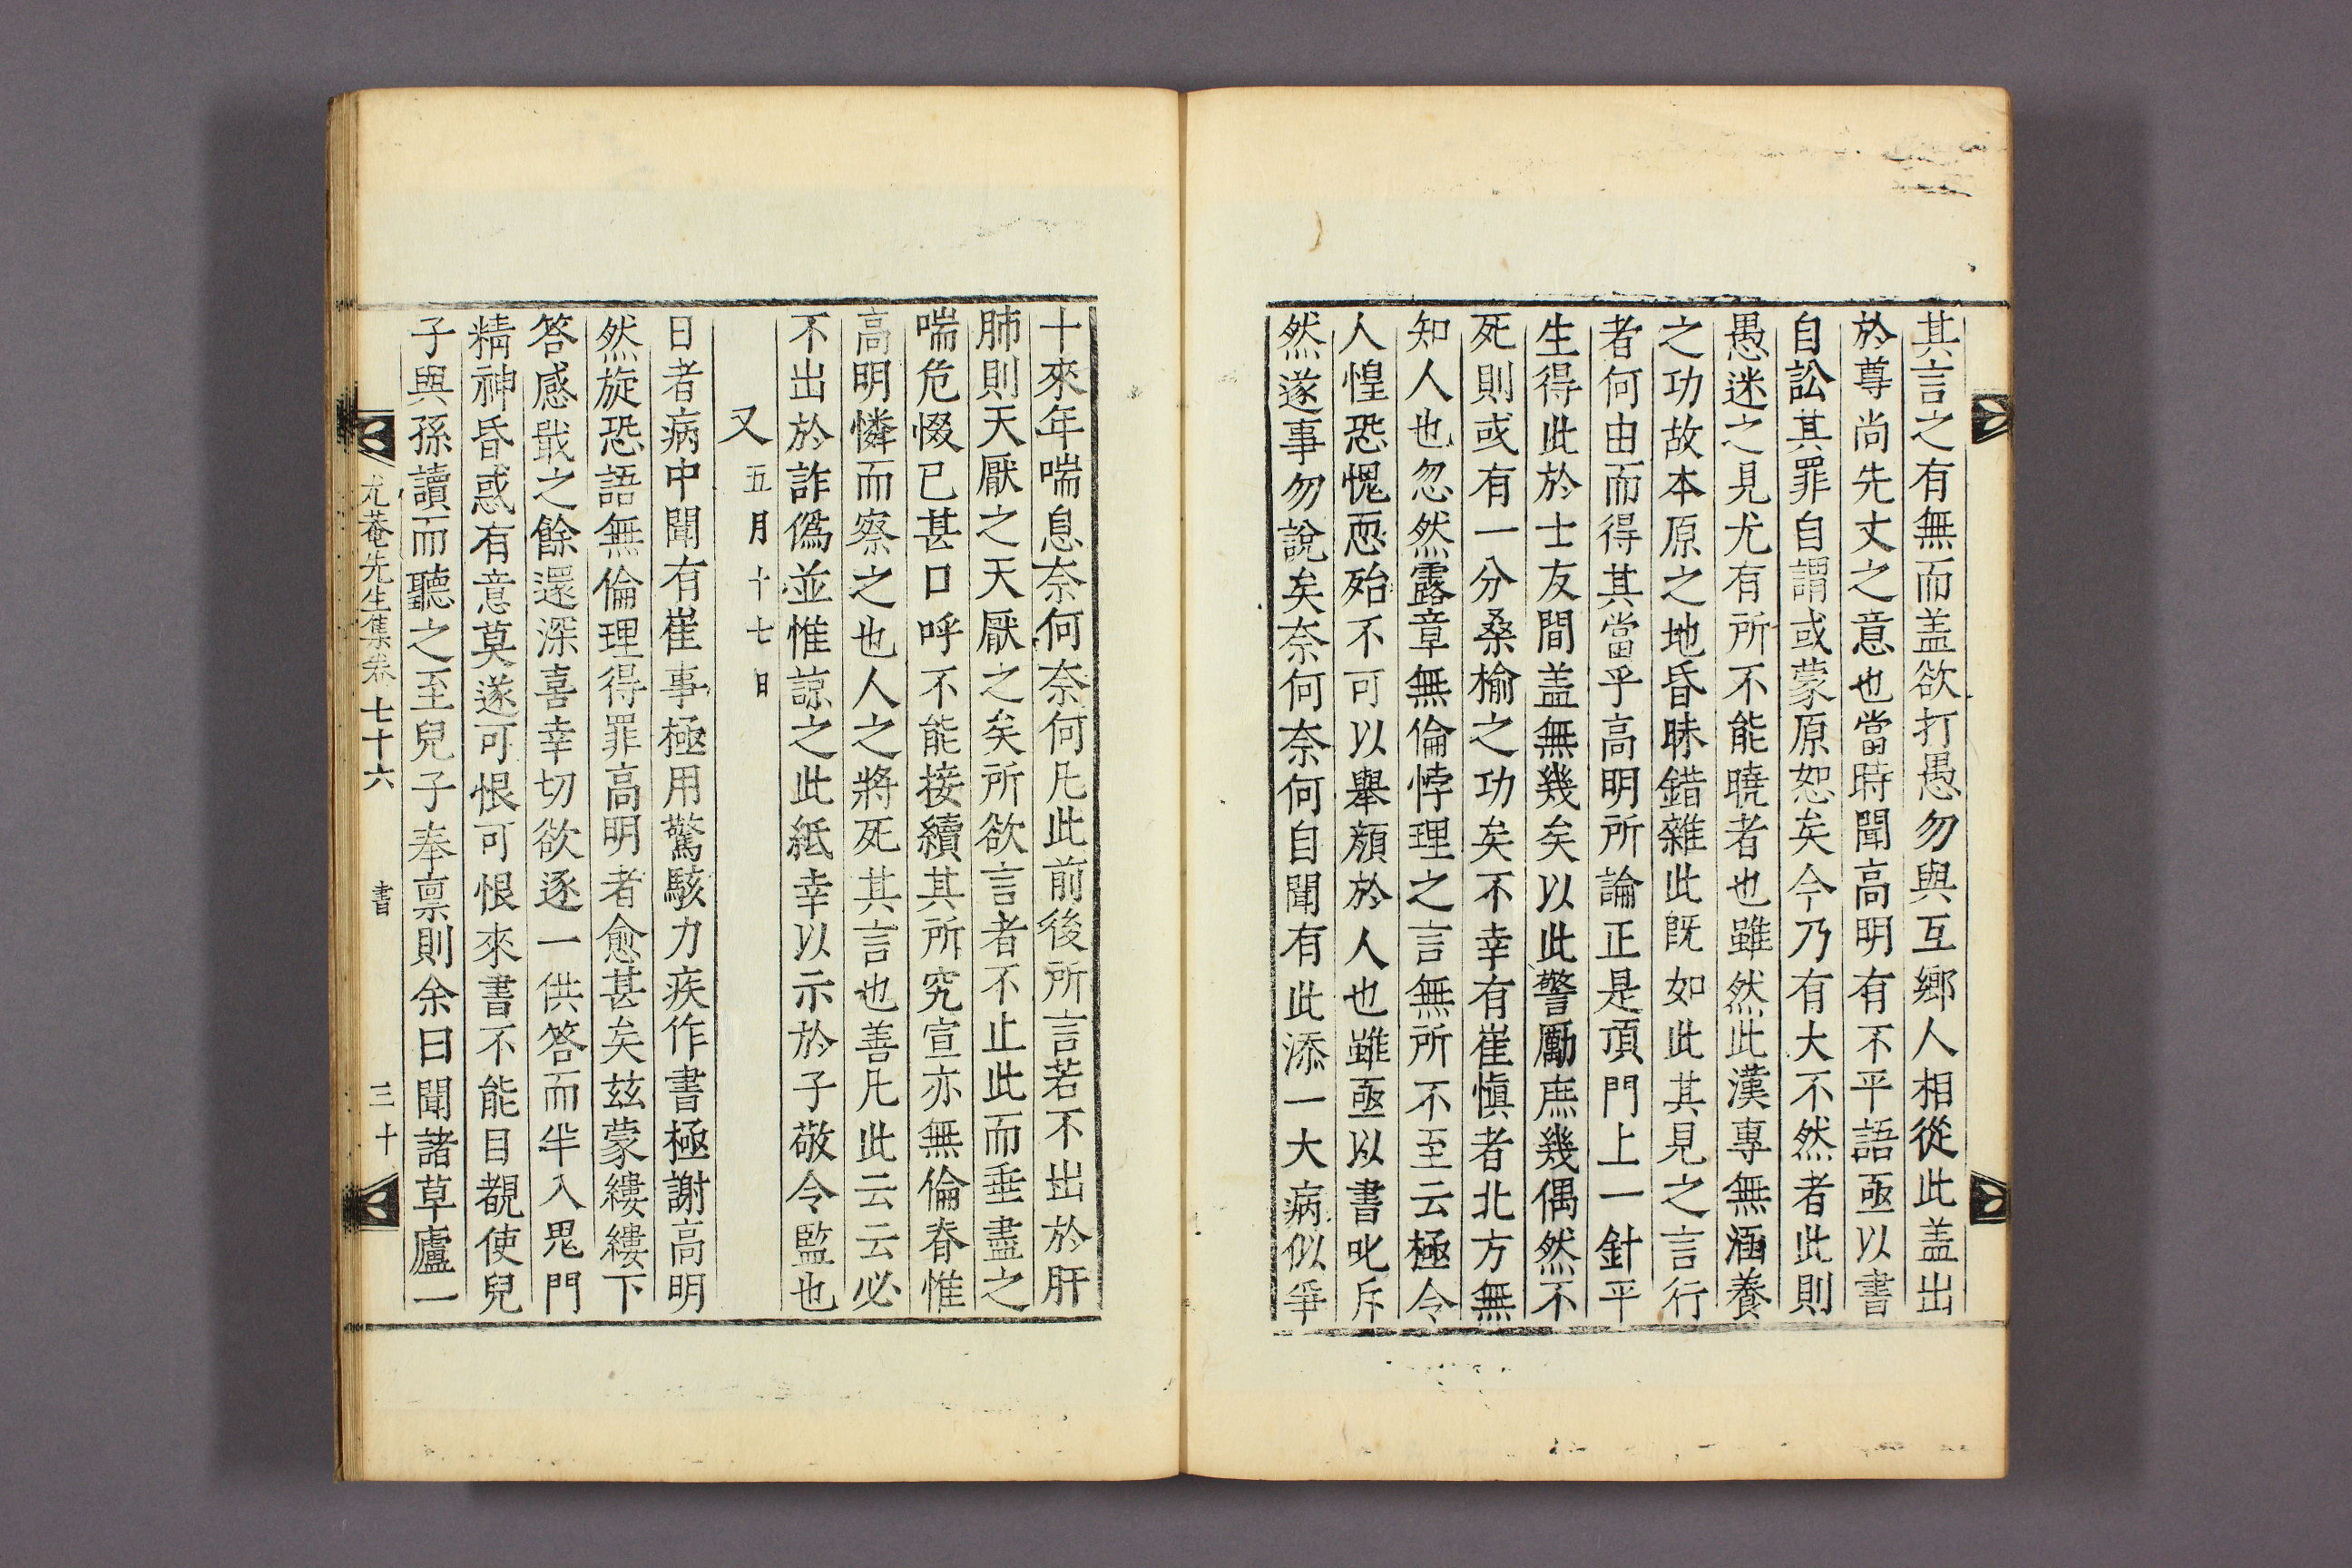 其言之有無而盖欲打愚勿與互鄉人相從此盖出
於尊尚先丈之意也當時聞高明有不平語亟以書
自訟其罪自謂或蒙原恕矣今乃有大不然者此則
愚迷之見尤有所不能曉者也雖然此漢專無涵養
之功故本原之地昏昧錯雜此既如此其見之言行
者何由而得其當乎高明所論正是頂門上一針平
生得此於士友間盖無幾矣以此警勵庶幾偶然不
死則或有一分桑榆之功矣不幸有崔愼者北方無
知人也忽然露章無倫悖理之言無所不至云極令
人惶恐愧恧殆不可以舉顔於人也雖亟以書叱斥
然遂事勿說矣奈何奈何自聞有此添一大病似爭
十來年喘息奈何奈何凡此前後所言若不出於肝
肺則天厭之天厭之矣所欲言者不止此而垂盡之
喘危惙已甚口呼不能接續其所究宣亦無倫脊惟
高明憐而察之也人之將死其言也善凡此云云必
不出於詐僞並惟諒之此紙幸以示於子敬令監也
又 五月十七日
日者病中聞有崔事極用驚駭力疾作書極謝高明
然旋恐語無倫理得罪高明者愈甚矣玆蒙縷縷下
答感戢之餘還深喜幸切欲逐一供答而半入鬼門
精神昏惑有意莫遂可恨可恨來書不能目覩使兒
子與孫讀而聽之至兒子奉稟則余曰聞諸草廬一
尤菴先生集卷七十六 書 三十